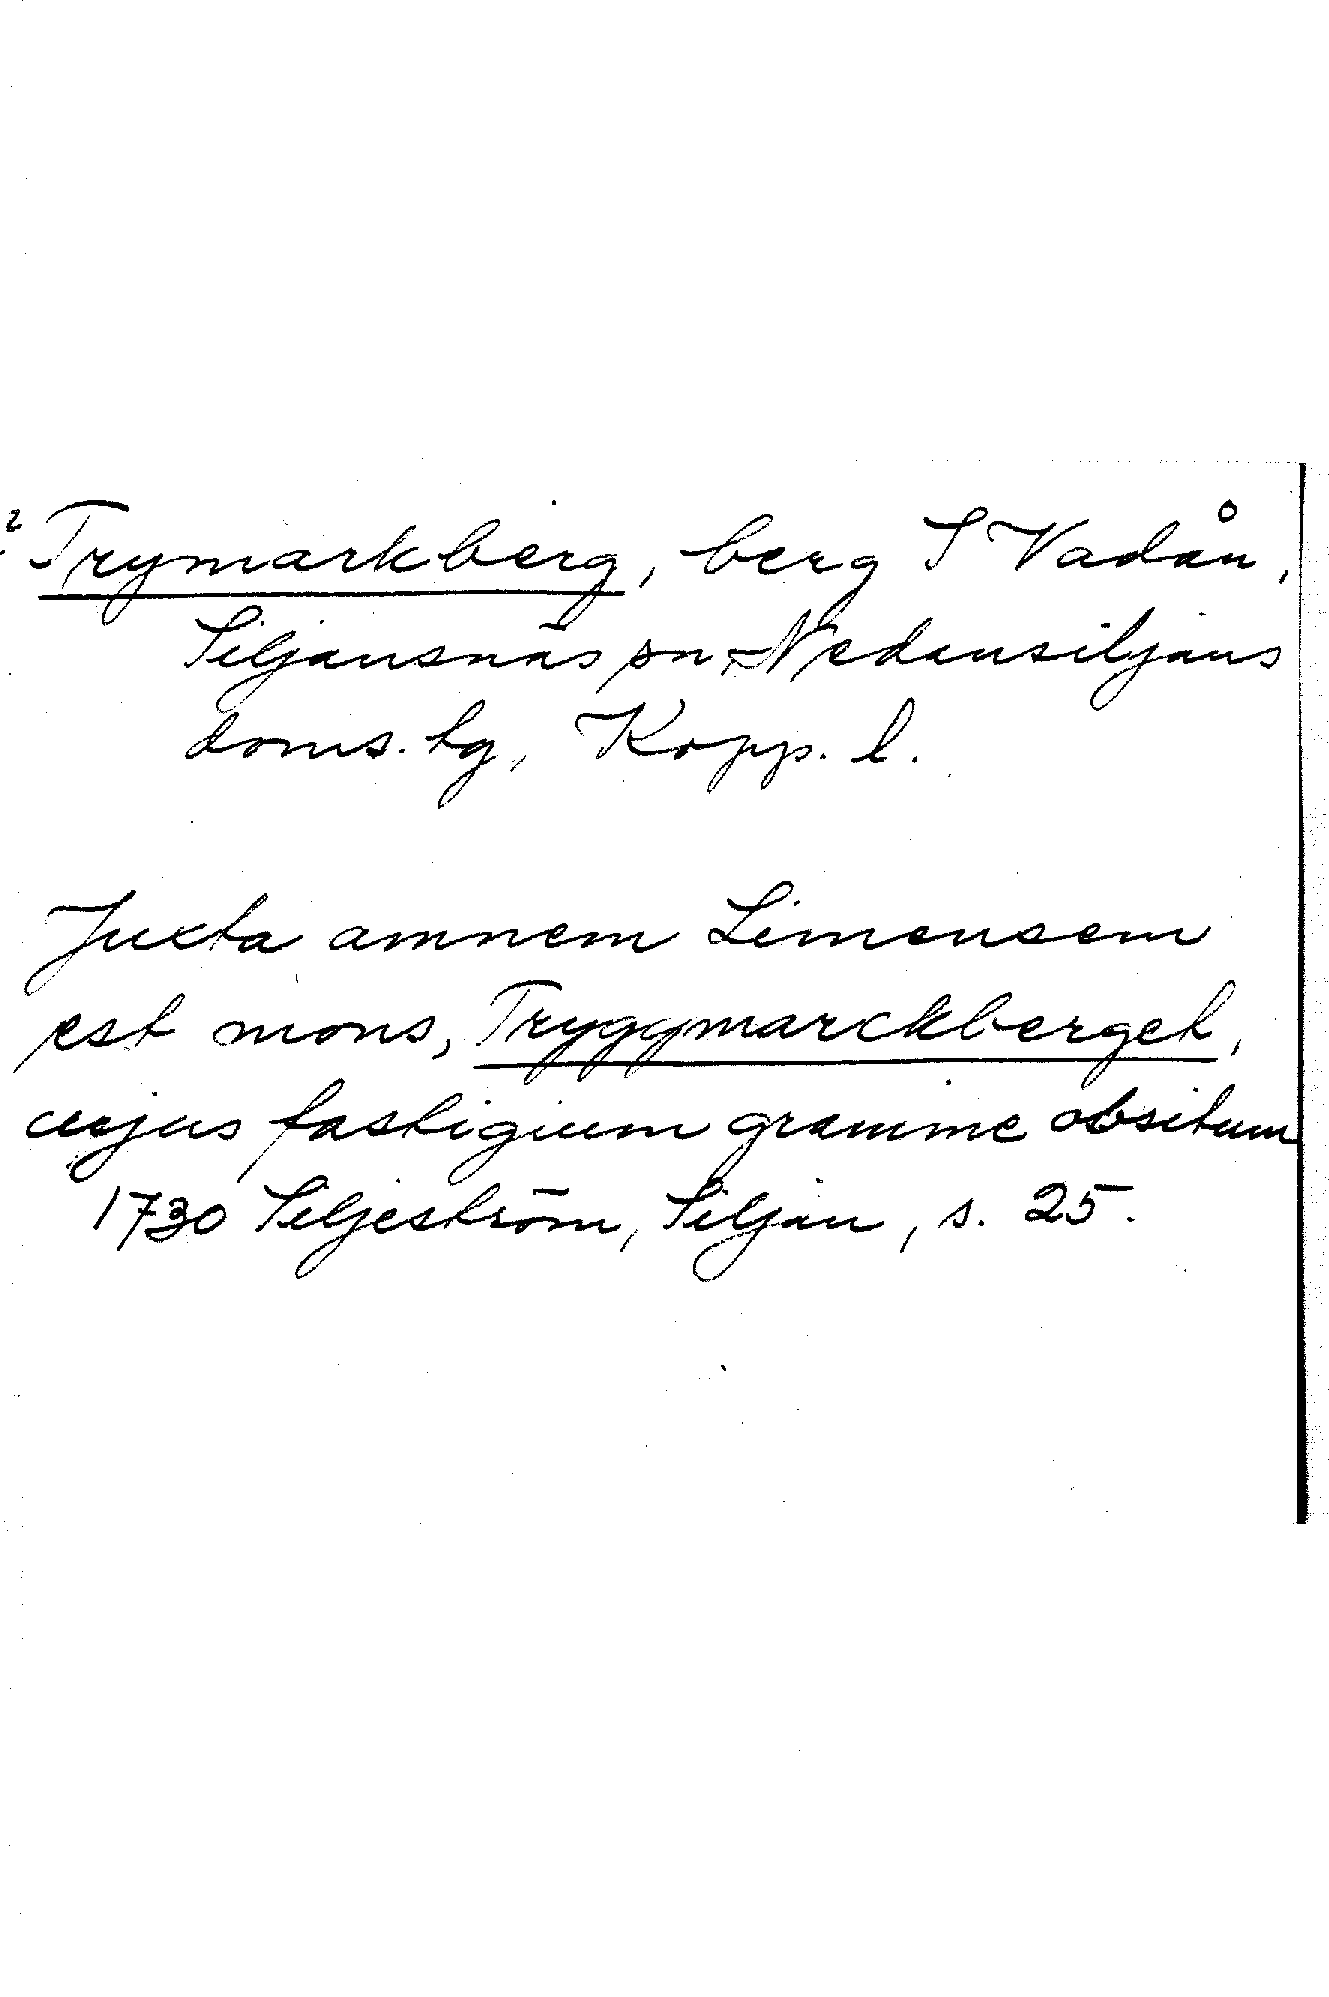 ? Trymarkberg, berg S Vadån,
Siljansnäs sn Nedansiljans
doms.hg, Kopp. l.
Juxta amnem Limensem
est mons, Tryggmarckberget,
cujus fastigium gramine obsitum
1730 Siljeström, Siljan, s. 25.